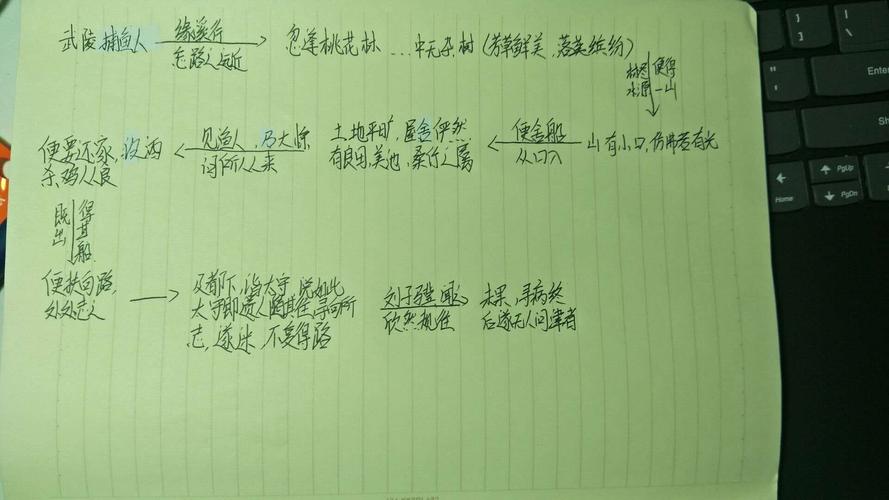 武陵捕鱼人 缘溪行 忘路之远近 忽逢桃花林...中无杂树(芳草鲜美,落英缤纷)
林尽水源 便得一山
山有小口,仿佛若有光
便舍船 从口入
土地平旷,屋舍俨然
有良田,美池,桑竹之属
见渔人,乃大惊
问所从来
便要还家,设酒
杀鸡作食
既出 得其船
便扶向路,
处处志之
及郡下,诣太守,说如此
太守即遣人随其往,寻向所
志,遂迷,不复得路
刘子骥,闻之
欣然规往
未果,寻病终
后遂无人问津者
Enter
Shift
Ctrl
Home
PgUp
PgDn